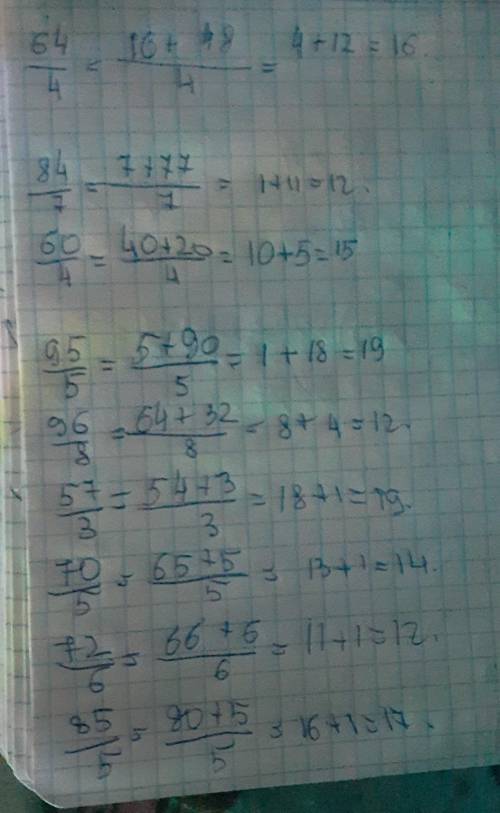 64/4 = 16+48/4 = 4+12=16.
84/7 = 7+77/7 = 1+11=12.
60/4 = 40+20/4 = 10+5=15
95/5 = 5+90/5 = 1+18=19
96/8 = 64+32/8 = 8+4=12.
57/3 = 54+3/3 = 18+1=19.
70/5 = 65+5/5 = 13+1=14.
72/6 = 66+6/6 = 11+1=12.
85/5 = 80+5/5 = 16+1=17.